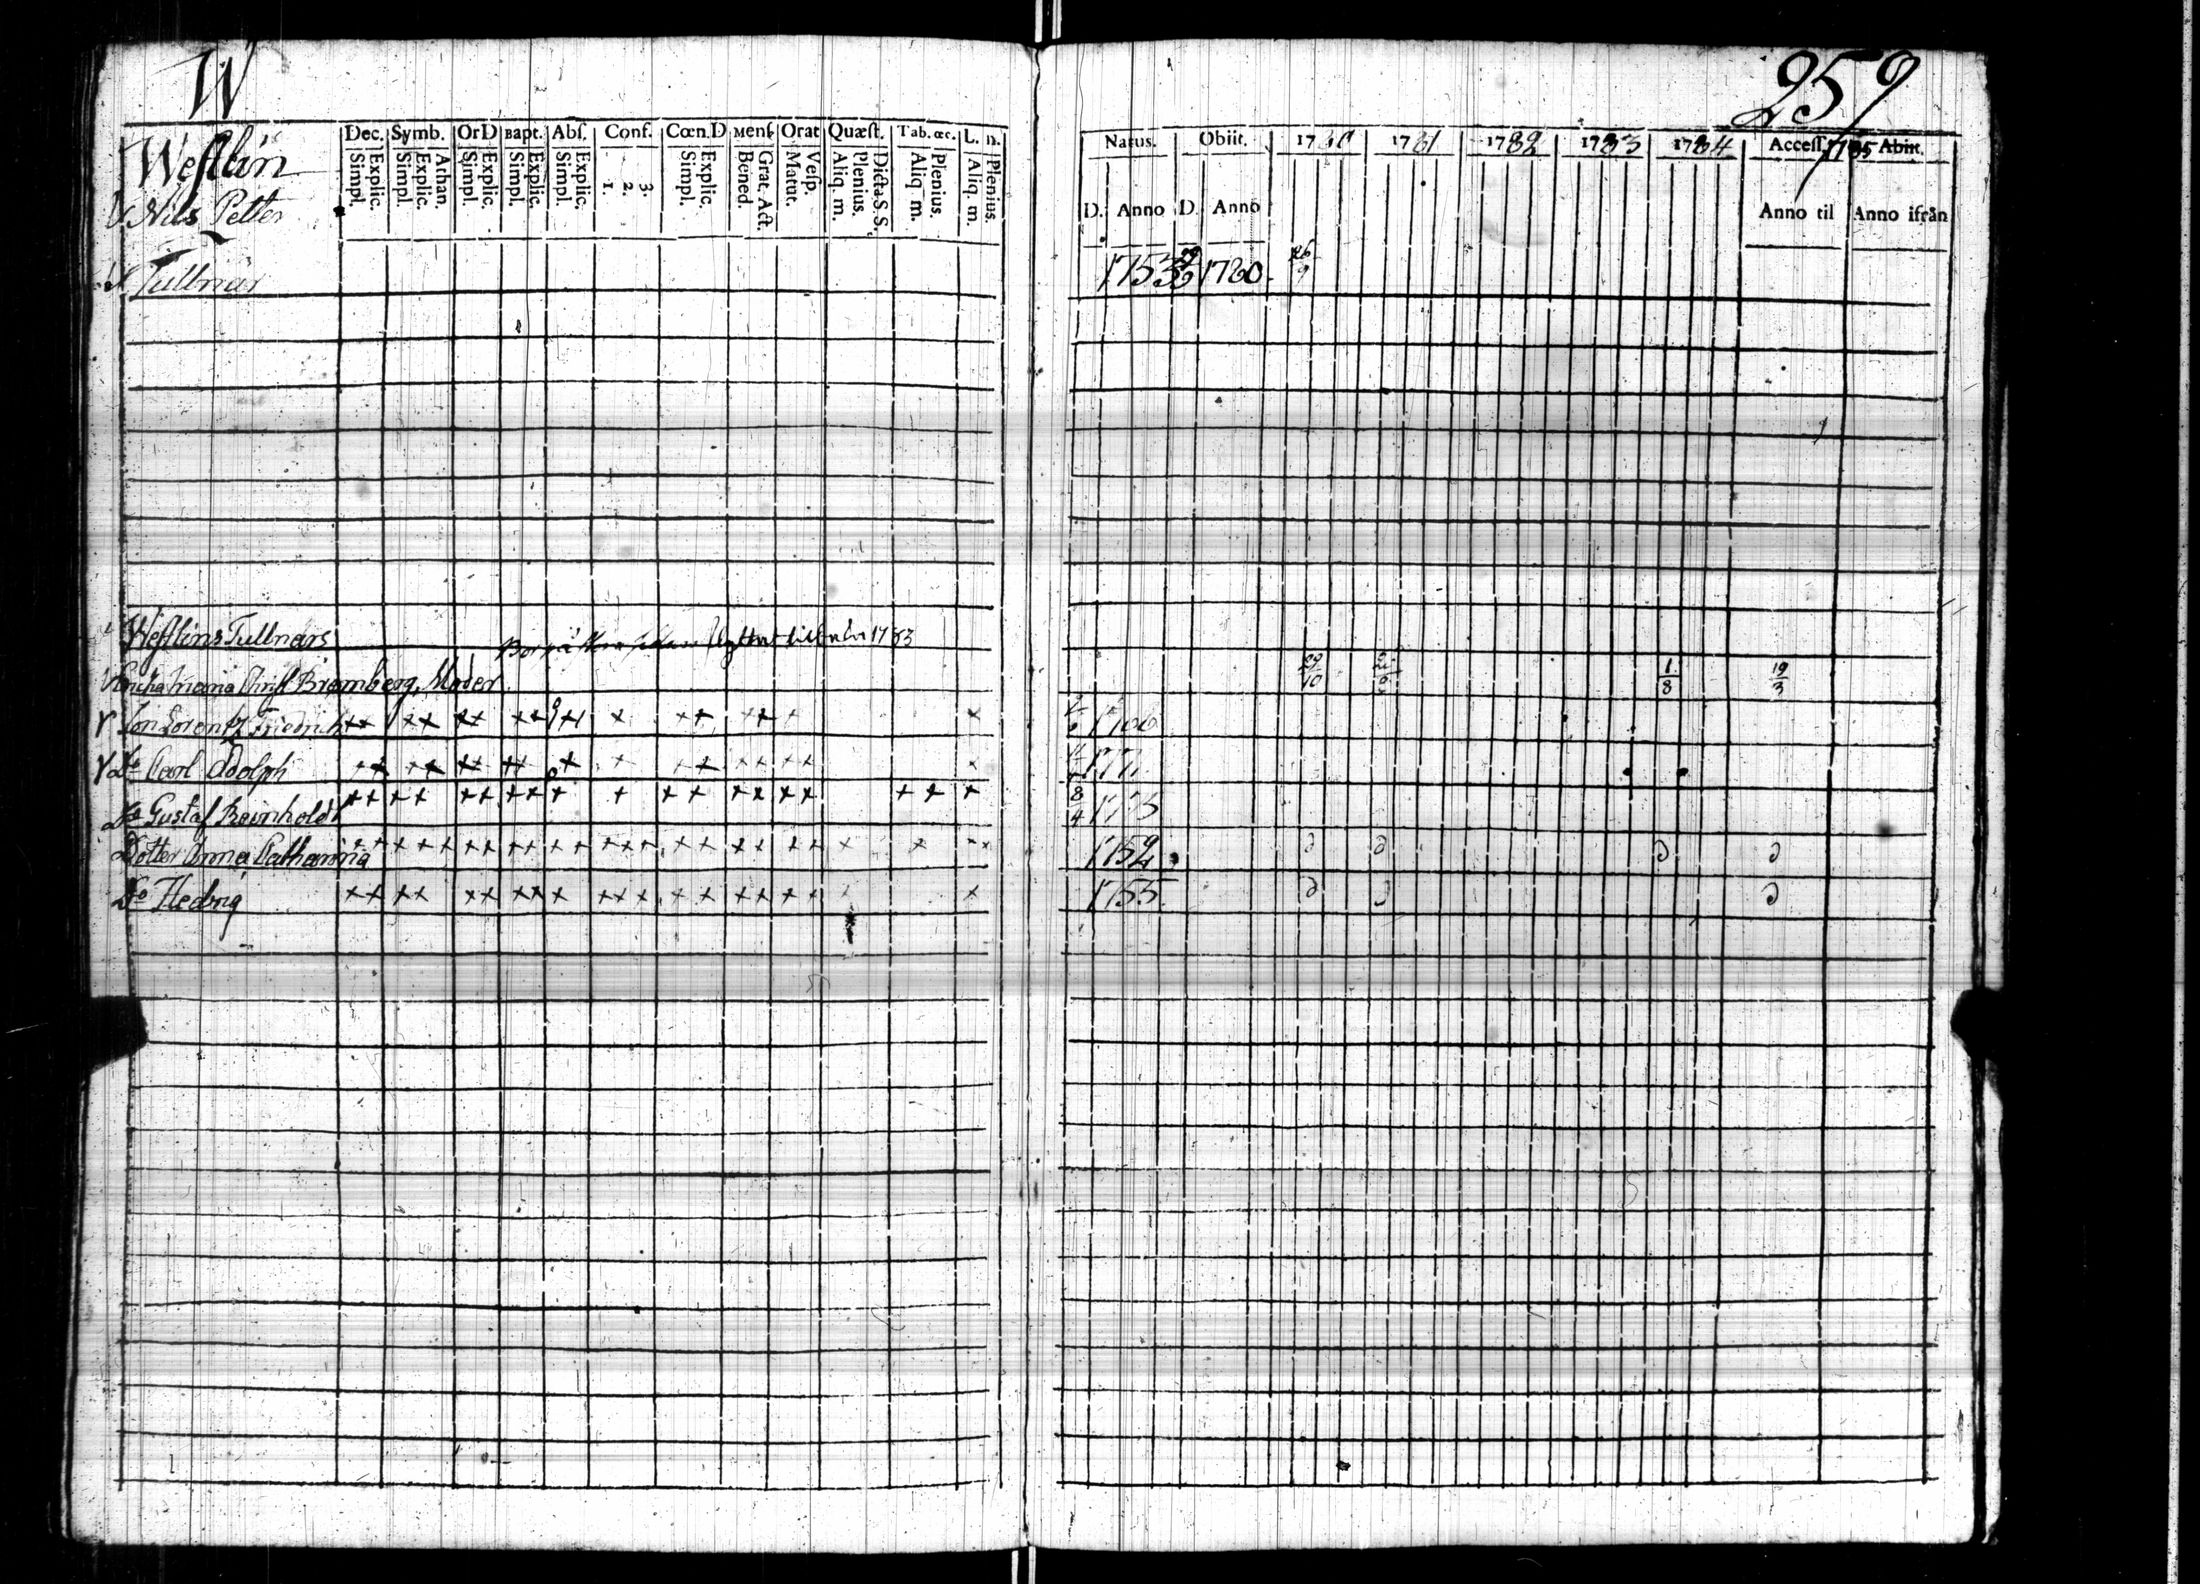 W
259
Dec. Symb. Or D Bapt. Abſ. Conf. Cœn. D Menſ. Orat Quæſt. Tab. œc. L. n.
Simpl. Explic. Simpl. Explic. Athan. Simpl. Explic. Simpl. Explic. Simpl. Explic. 1. 2. 3. Simpl. Explic. Bened. Grat. Act. Matut. Veſp. Aliq. m. Plenius. Dicta S. S. Aliq m. Plenius. Aliq. m. Plenius.
Natus. Obiit. 1780 1781 1782 1783 1784 Acceſſ. 1785 Abiit.
D. Anno D. Anno Anno til Anno ifrån
Weſtlin
Nils Petter
Tullnär 1753 1780 26/9
Weſtlins Tullnärs 1783
Bromberg, Moder 29/10 1/8 19/3
Son Lorentz Friedrich ×× ×× ×× ×× ×× × ×× ×× × ×
Do Carl Adolph ×× ×× ×× ×× × × ×× ×× ×× ×
Do Gustaf Reinholdt ×× ×× ×× ×× × × ×× ×× ×× ×× × 8/4
Dotter Anna Catharina 1752
Do Hedvig ×× ×× ×× ×× × ××× ×× ×× ×× × × 1755